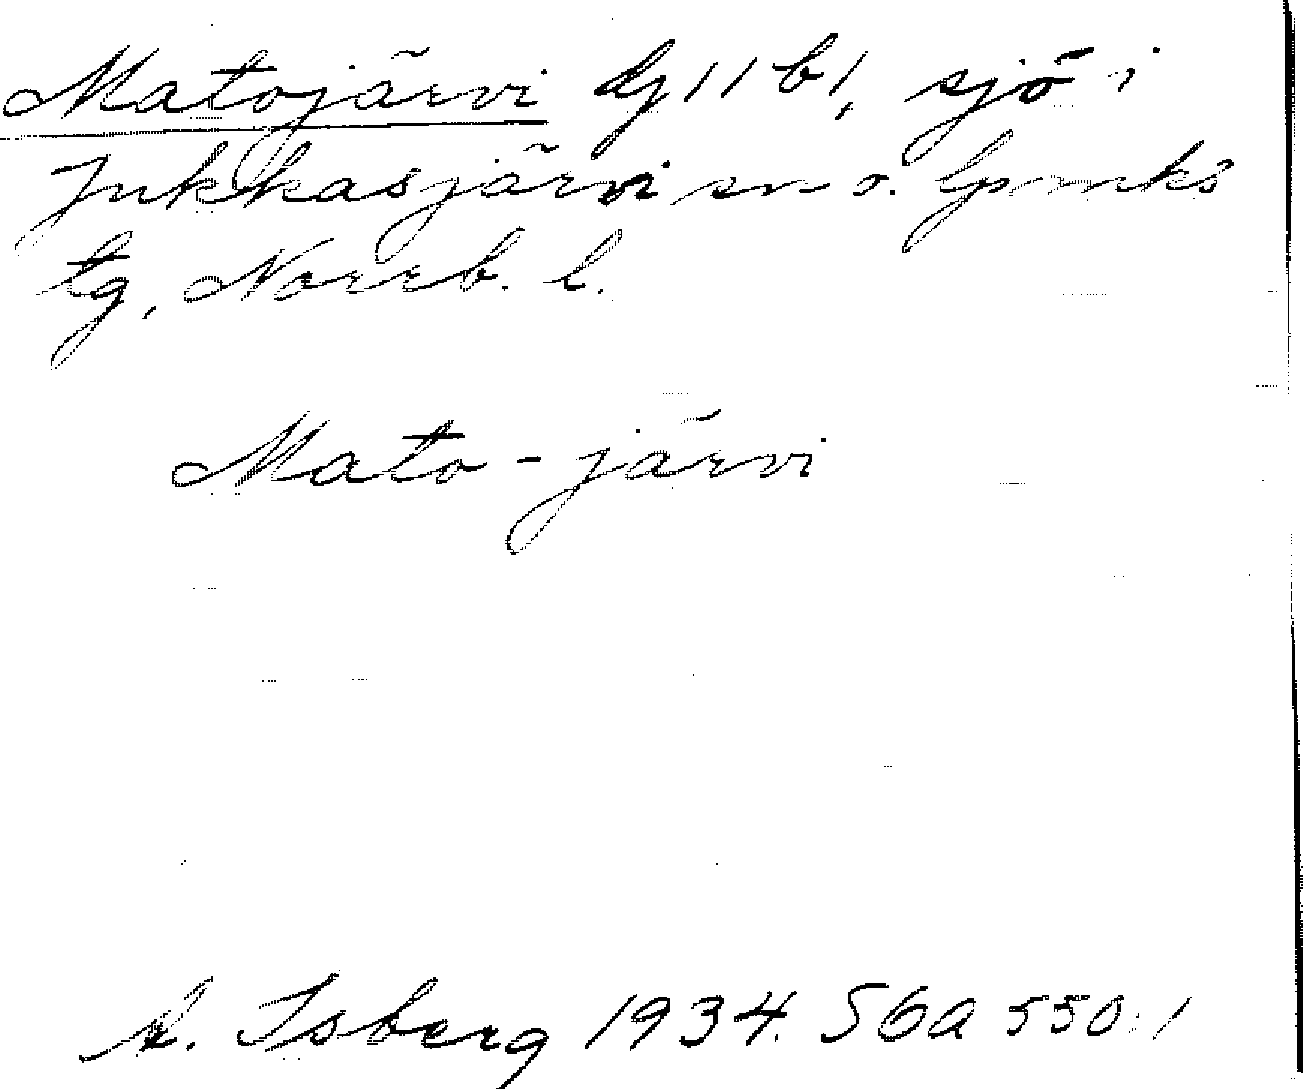 Matojärvi Dg 11 b 1, sjö i
Jukkasjärvi sn o. lpmks
tg, Norrb. l.
Mato - järvi
A. Isberg 1934. SGA 550:1